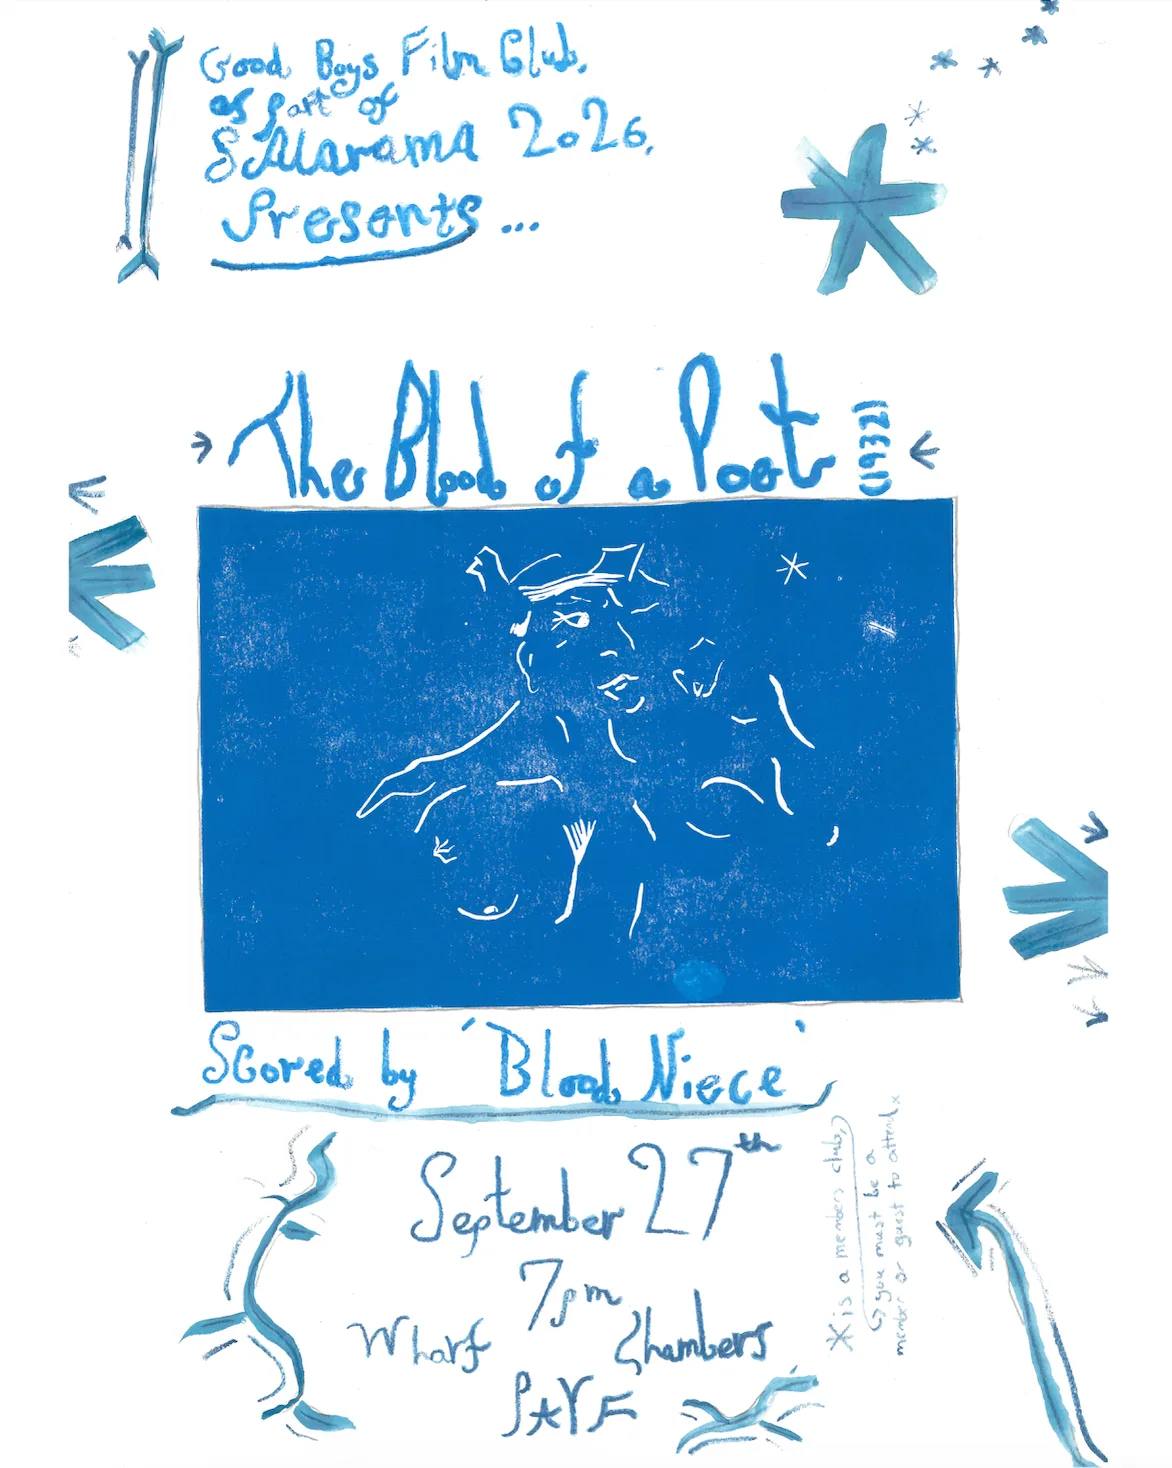 Good Boys Film Club,
as part of
SAlarama 2026,
Presents...
The Blood of a Poet (1932)
Scored by 'Blood Niece'
September 27th
7pm
Wharf Chambers
PAYF
* is a members club,
you must be a
member or guest to attend x